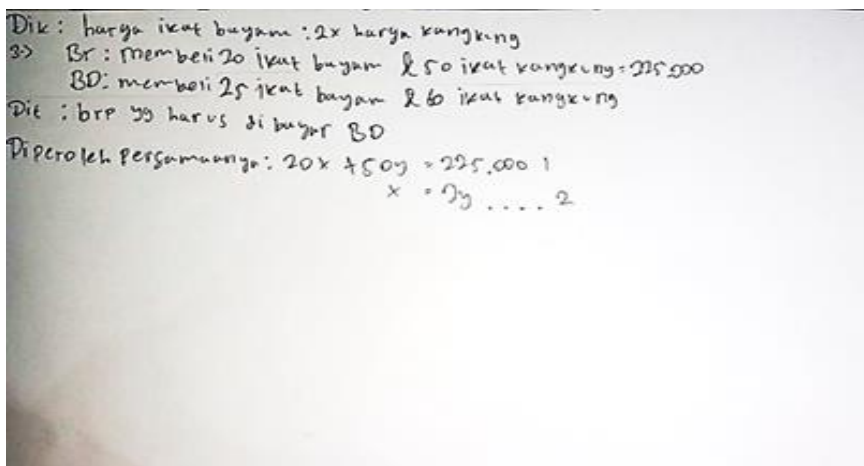 Dik : harga ikat bayam : 2x harga kangkung
3.> Br : membeli 20 ikat bayam & 50 ikat kangkung = 225.000
BD : membeli 25 ikat bayam & 60 ikat kangkung
Dit : brp yg harus di bayar BD
Diperoleh persamaanya : 20x + 50y = 225.000 1
x = 2y .... 2